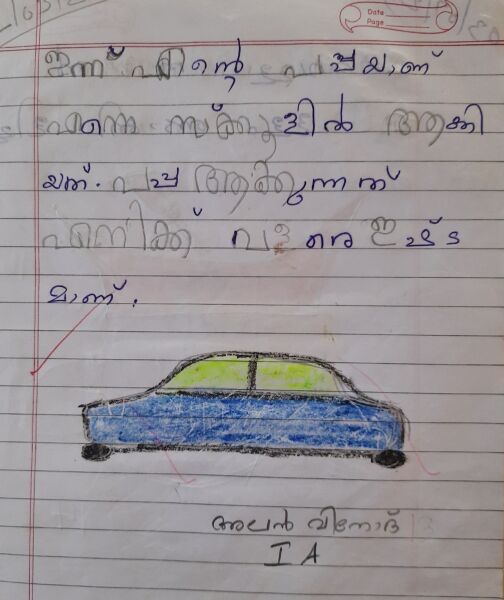 Date
Page
ഇന്ന് എന്റെ പപ്പയാണ്
എന്നെ സ്ക്കൂളിൽ ആക്കി
യത്. പപ്പ ആക്കുന്നത്
എനിക്ക് വളരെ ഇഷ്ട
മാണ്.
അലൻ വിനോദ്
I A